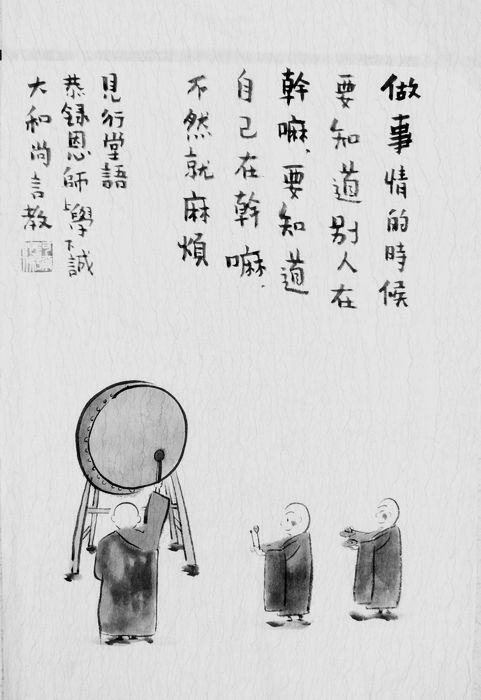 做事情的時候
要知道別人在
幹嘛，要知道
自己在幹嘛，
不然就麻煩
見行堂語
恭録恩師上學下誠
大和尚言教